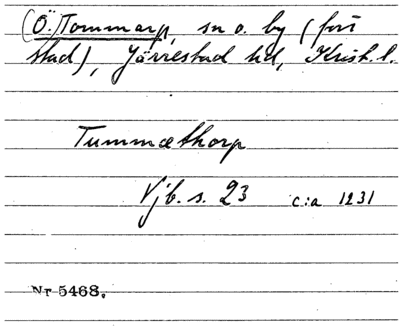 (Ö.)Tommarp, sn o. by (förr
stad), Järrestad hd, Krist. l.
Tummæthorp
Vjb. s. 23 c:a 1231
Nr 5468.